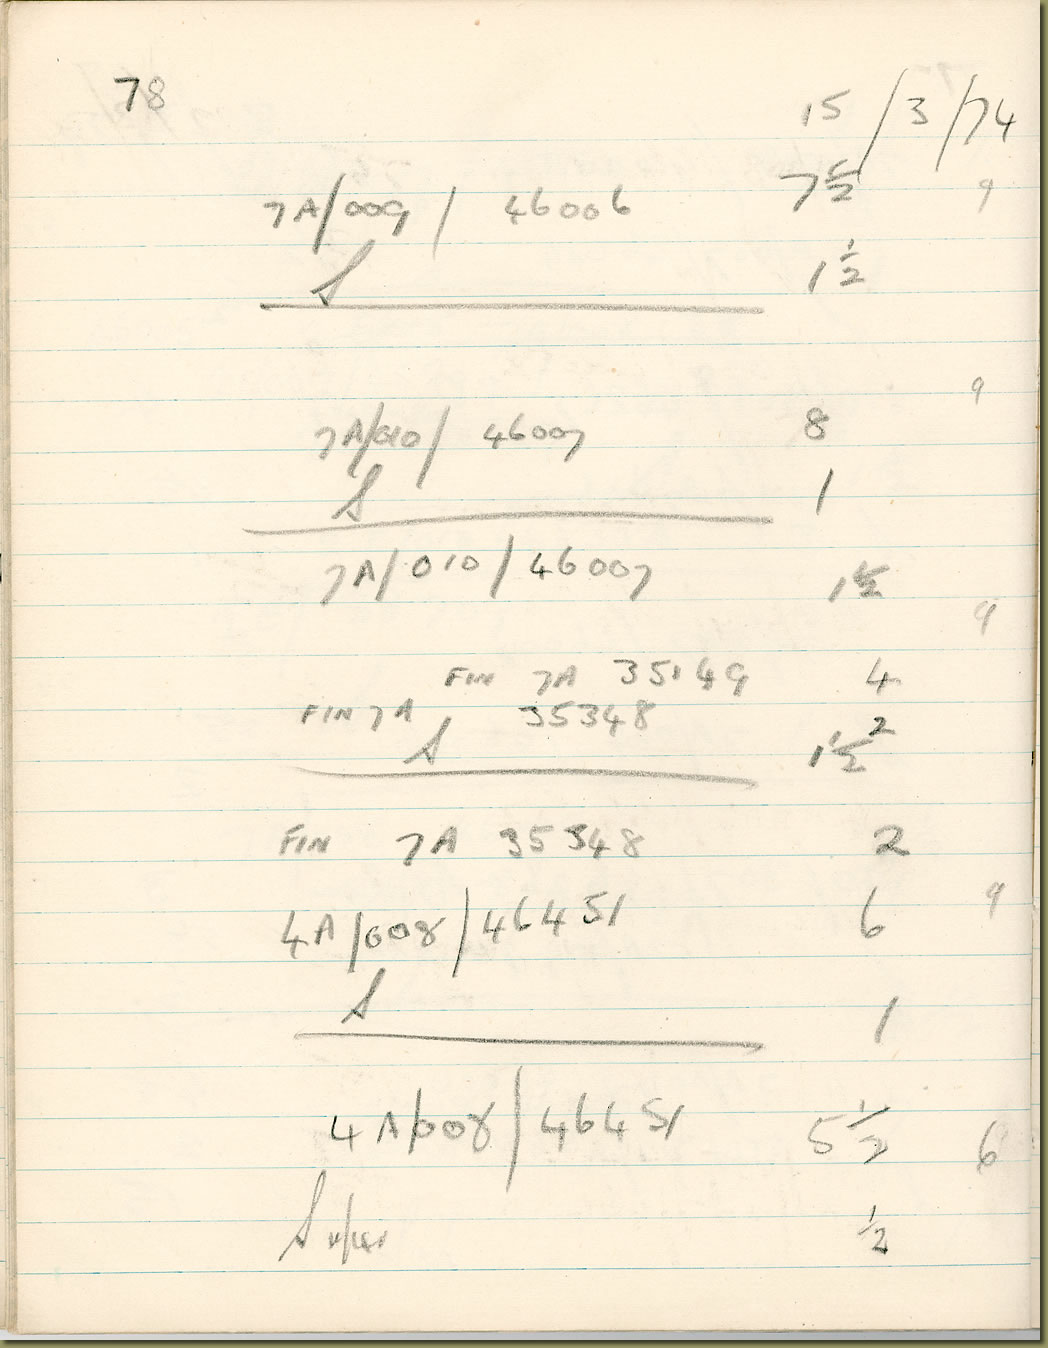 78
15/3/74
7A/009/ 46006 7½ 9
S 1½
9
7A/010/ 46007 8
S 1
7A/010/46007 1½
9
FIN 7A 35149 4
FIN 7A 35348 2
S 1½
FIN 7A 35348 2
4A/008/46451 6 9
S 1
4A/008/46451 5½ 6
½